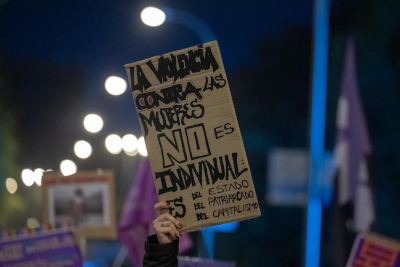 LA VIOLENCIA
CONTRA LAS
MUJERES
NO ES
INDIVIDUAL:
ES
DEL ESTADO
DEL PATRIARCADO
DEL CAPITAL